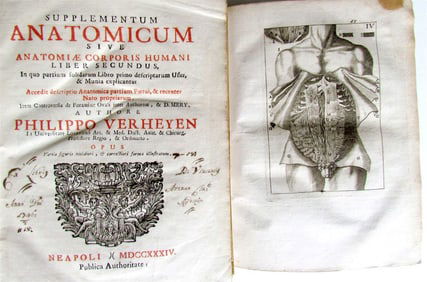 SUPPLEMENTUM
ANATOMICUM
SIVE
ANATOMIÆ CORPORIS HUMANI
LIBER SECUNDUS,
In quo partium solidarum Libro primo descriptarum Usus,
& Munia explicantur
Accedit descriptio Anatomica partium Fœtui, & recenter
Nato propriarum,
Item Controversia de Foramine Ovali inter Authorem, & D. MERY,
AUTHORE
PHILIPPO VERHEYEN
In Universitate Lovaniensi Art. & Med. Doct. Anat. & Chirurg.
Professore Regio, & Ordinario.
OPUS
Variis figuris nitidiori, & correctiori forma illustratum.
NEAPOLI MDCCXXXIV.
Publica Authoritate:
IV